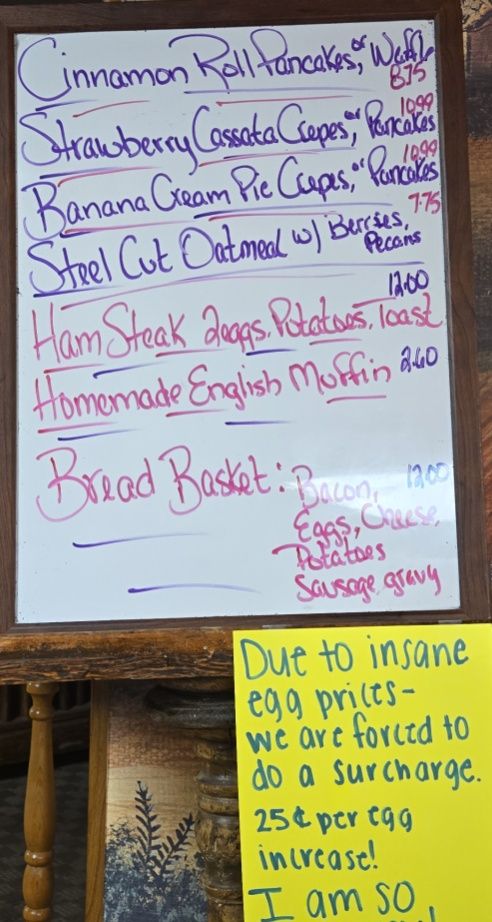 Cinnamon Roll Pancakes, or Waffle
8.75
Strawberry Cassata Crepes, or Pancakes
10.99
Banana Cream Pie Crepes, or Pancakes
10.99
Steel Cut Oatmeal w/ Berries,
Pecans
7.75
Ham Steak 2eggs, Potatoes, Toast
12.00
Homemade English Muffin 2.60
Bread Basket: Bacon, 12.00
Eggs, Cheese,
Potatoes
Sausage gravy
Due to insane
egg prices-
we are forced to
do a surcharge.
25¢ per egg
increase!
I am so